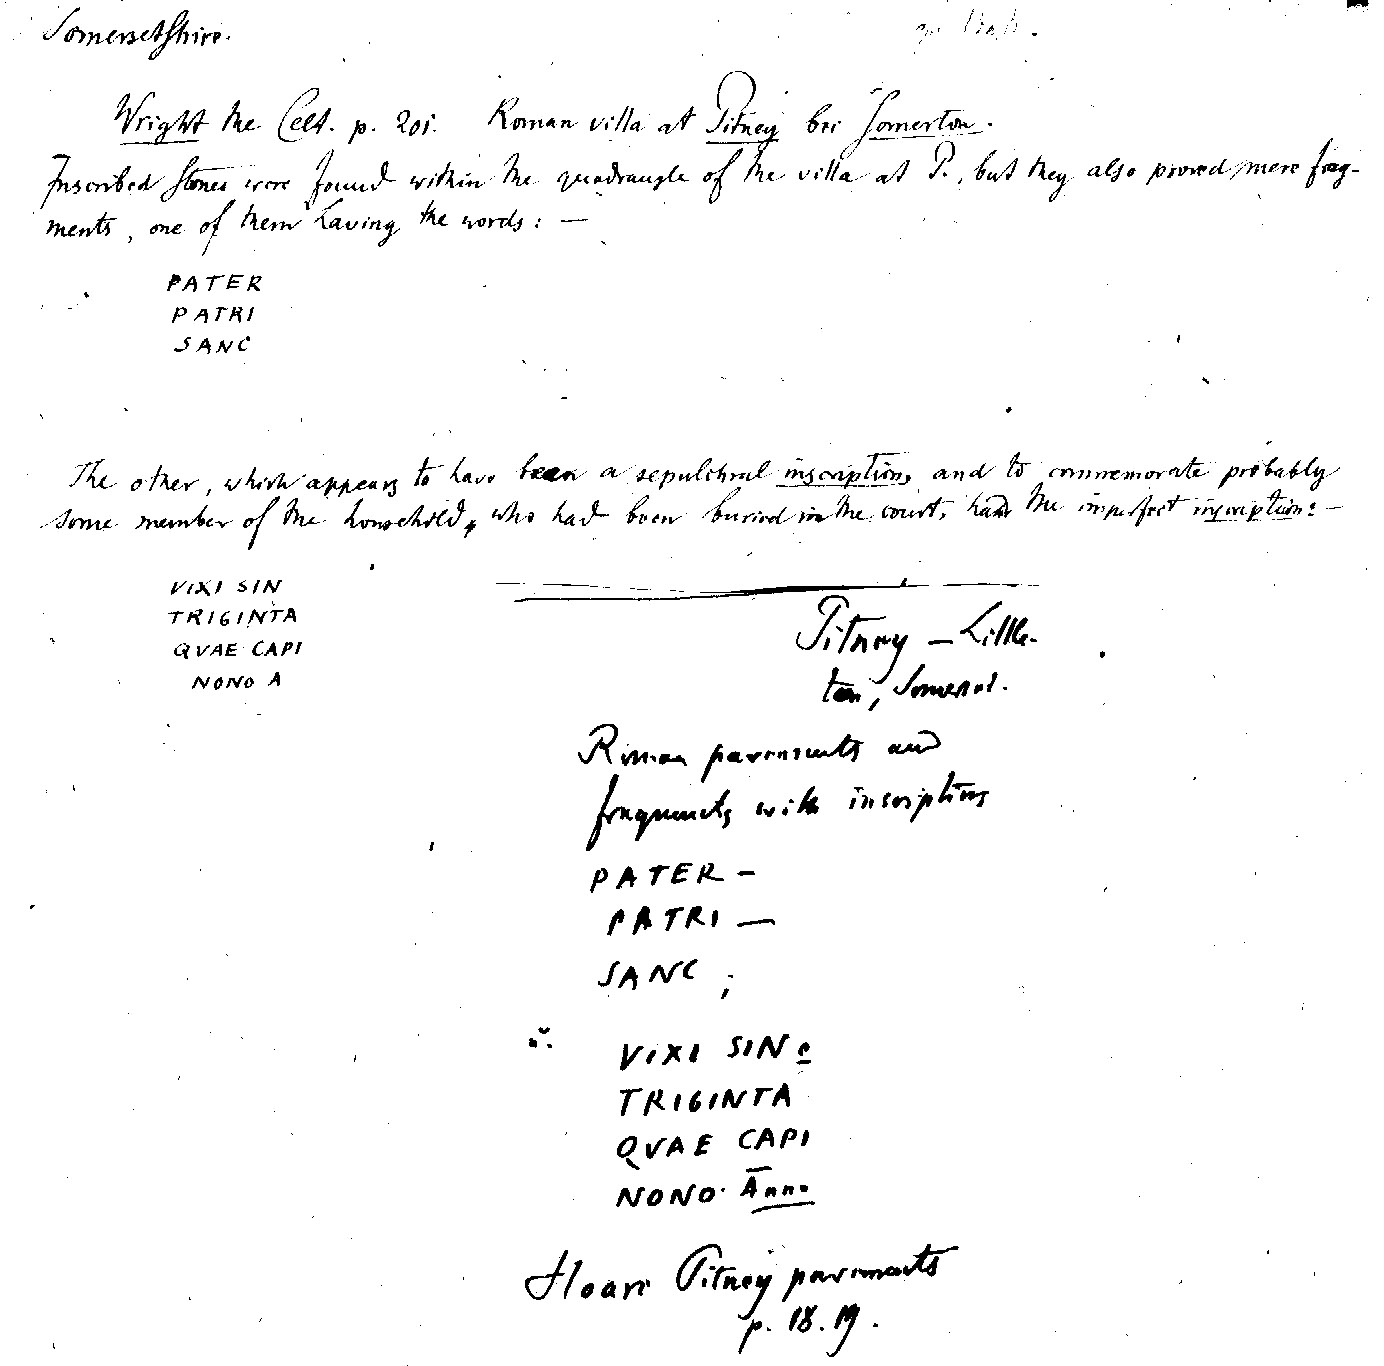 Somersetshire.
Wright the Celt. p. 201. Roman villa at Pitney bei Somerton.
Inscribed stones were found within the quadrangle of the villa at P., but they also proved mere frag-
ments, one of them having the words: —
PATER
PATRI
SANC
The other, which appears to have been a sepulchral inscription, and to commemorate probably
some member of the household, who had been buried in the court, had the imperfect inscription: —
VIXI SIN
TRIGINTA
QVAE CAPI
NONO A
Pitney — Little-
ton, Somerset.
Roman pavements and
fragments with inscriptions
PATER —
PATRI —
SANC ;
VIXI SINe
TRIGINTA
QVAE CAPI
NONO Anno
Hoare Pitney pavements
p. 18. 19.